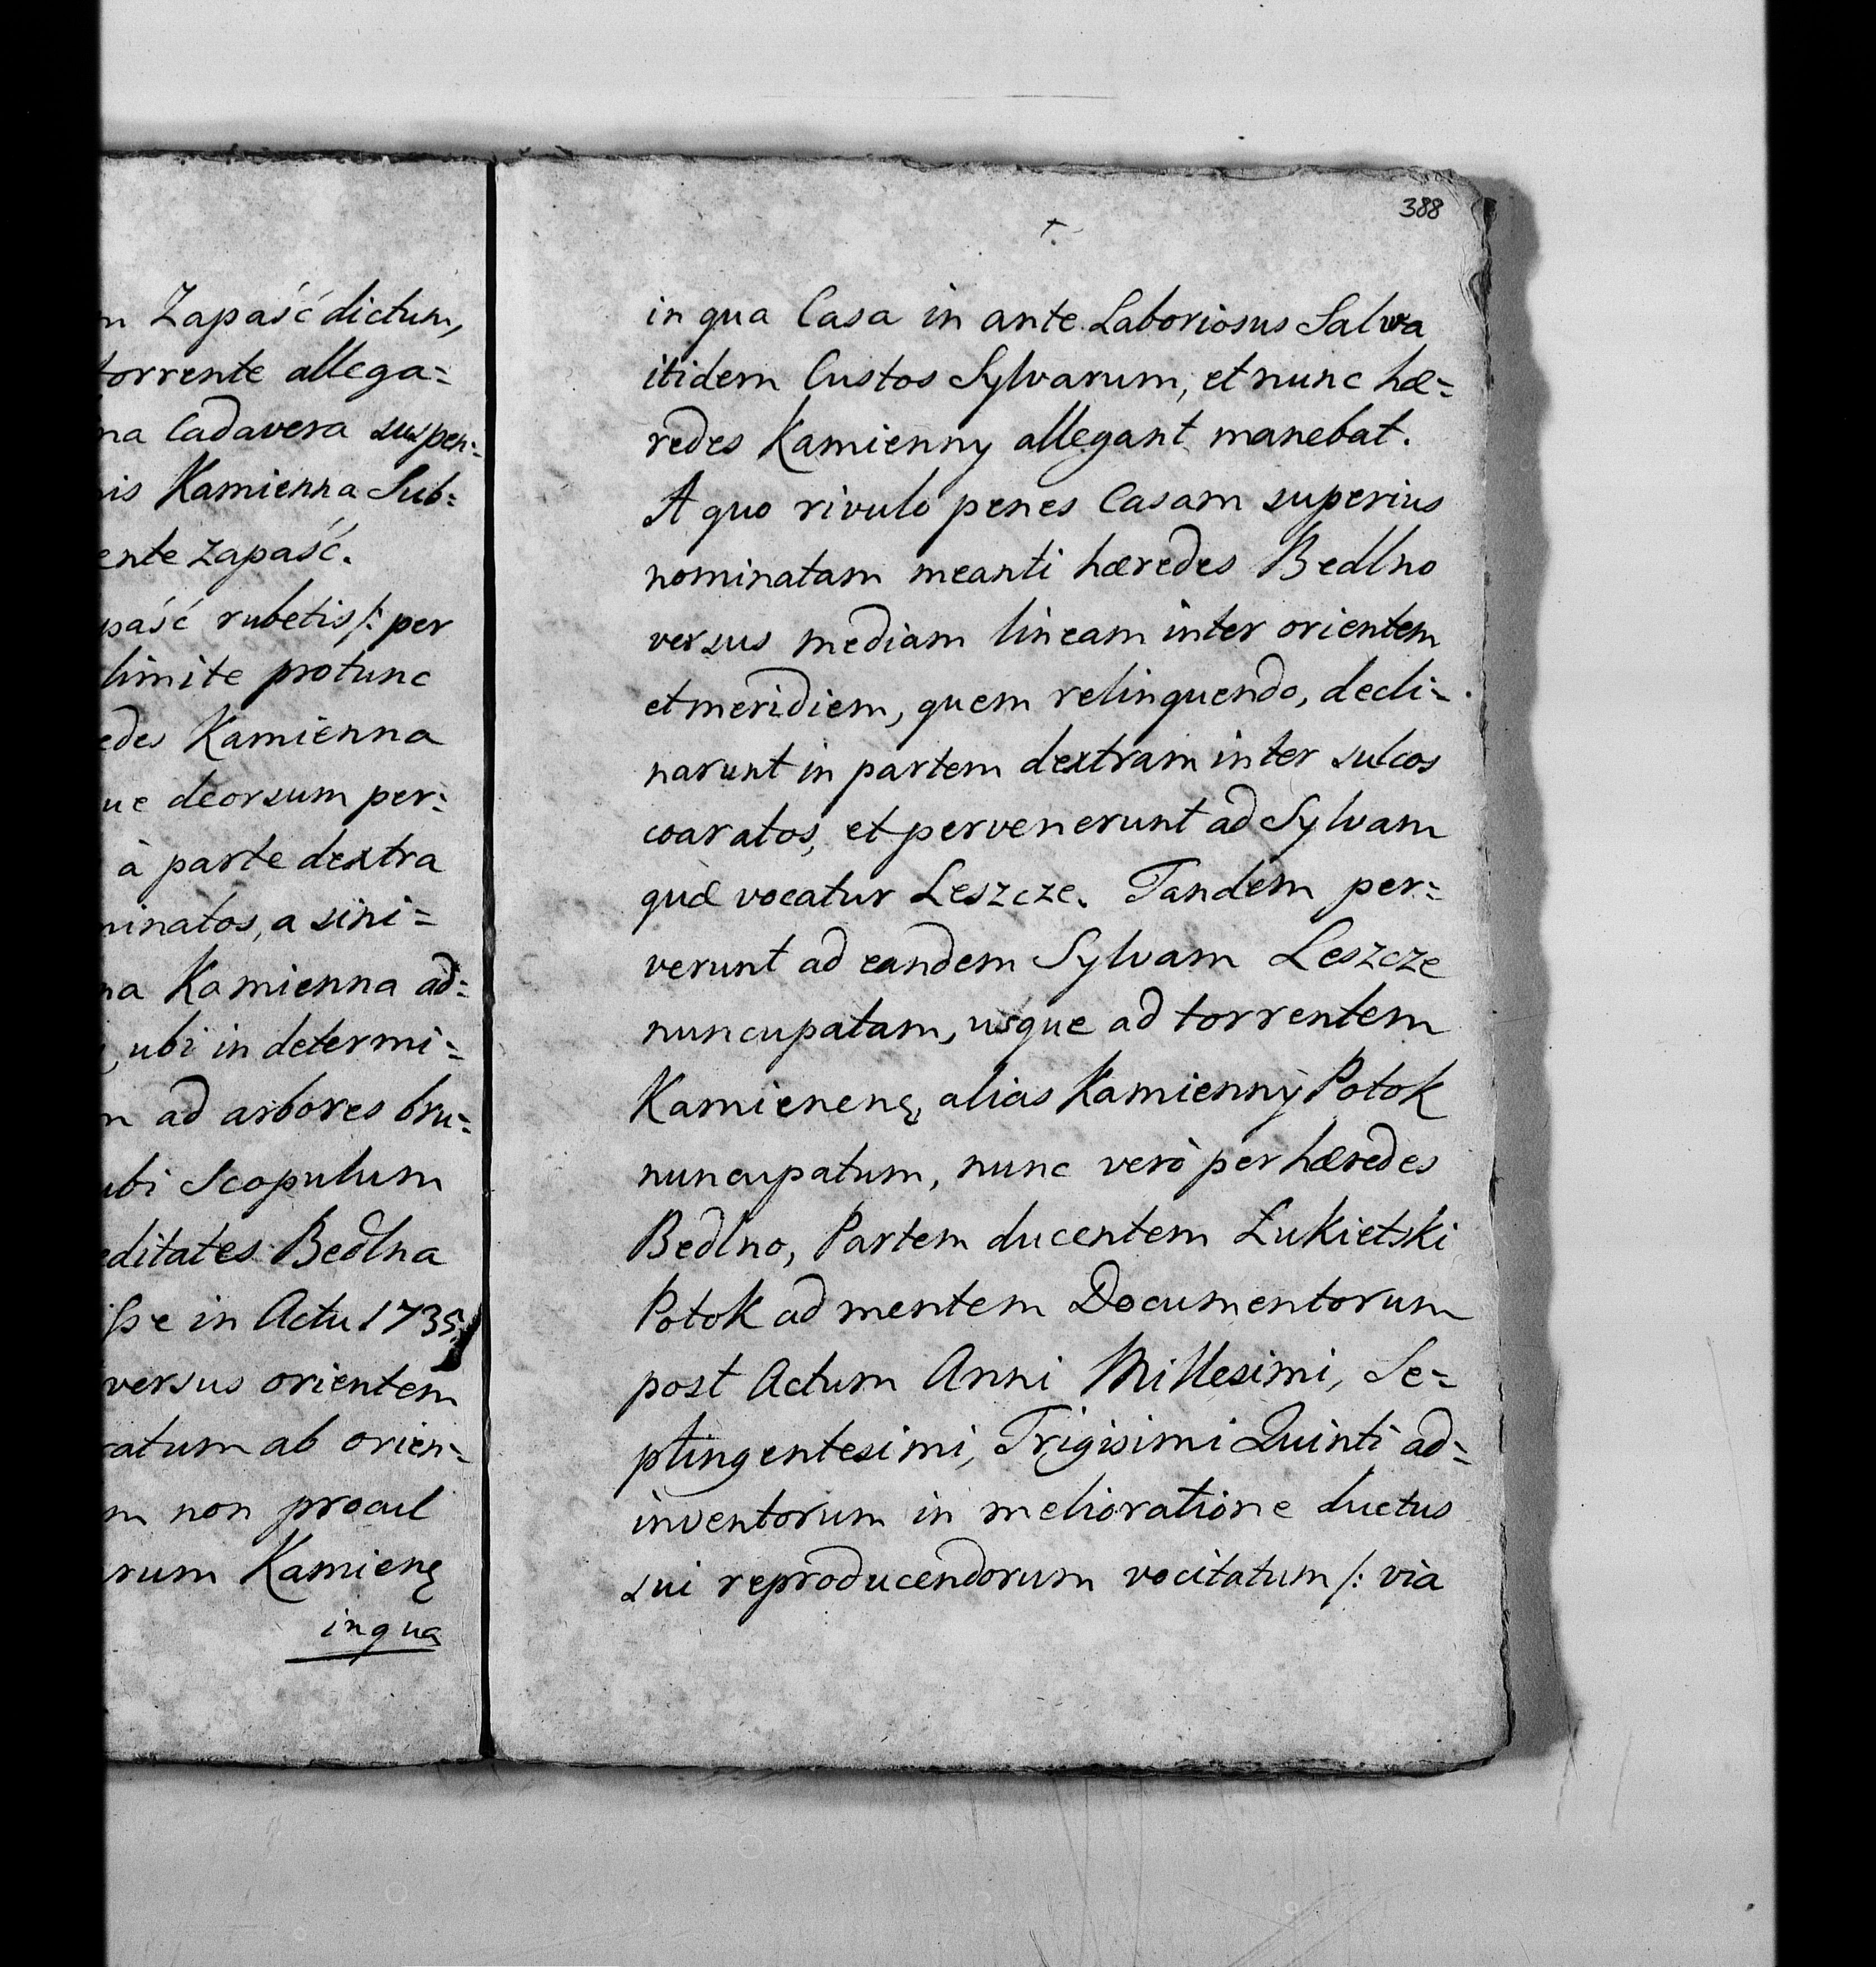 m Zapaść dictum,
torrente allega=
na Cadavera suspen=
is Kamienna Sub=
ente Zapaść.
paść rubetis /: per
limite protunc
edes Kamienna
ue deorsum per=
à parte dextra
minatos, a sini=
na Kamienna ad=
ubi in determi=
m ad arbores bru=
ubi Scopulum
editates Bedlna
ſse in Actu 1735
versus orientem
ratum ab orien=
m non procul
rum Kamienę
in qua
388
in qua Casa in ante Laboriosus Salwa
itidem Custos Sylvarum, et nunc hæ=
redes Kamienny allegant manebat.
A quo rivulo penes Casam superius
nominatam meanti hæredes Bedlno
versus mediam lineam inter orientem
et meridiem, quem relinquendo, decli=
narunt in partem dextram inter sulcos
coaratos, et pervenerunt ad Sylvam
quæ vocatur Leszcze. Tandem per=
verunt ad eandem Sylvam Leszcze
nuncupatam, usque ad torrentem
Kamienenę, alias Kamienny Potok
nuncupatum, nunc verò per hæredes
Bedlno, Partem ducentem Łukietski
Potok ad mentem Documentorum
post Actum Anni Millesimi, Se=
ptingentesimi, Trigisimi Quinti ad=
inventorum in melioratione ductus
sui reproducendorum vocitatum /: via